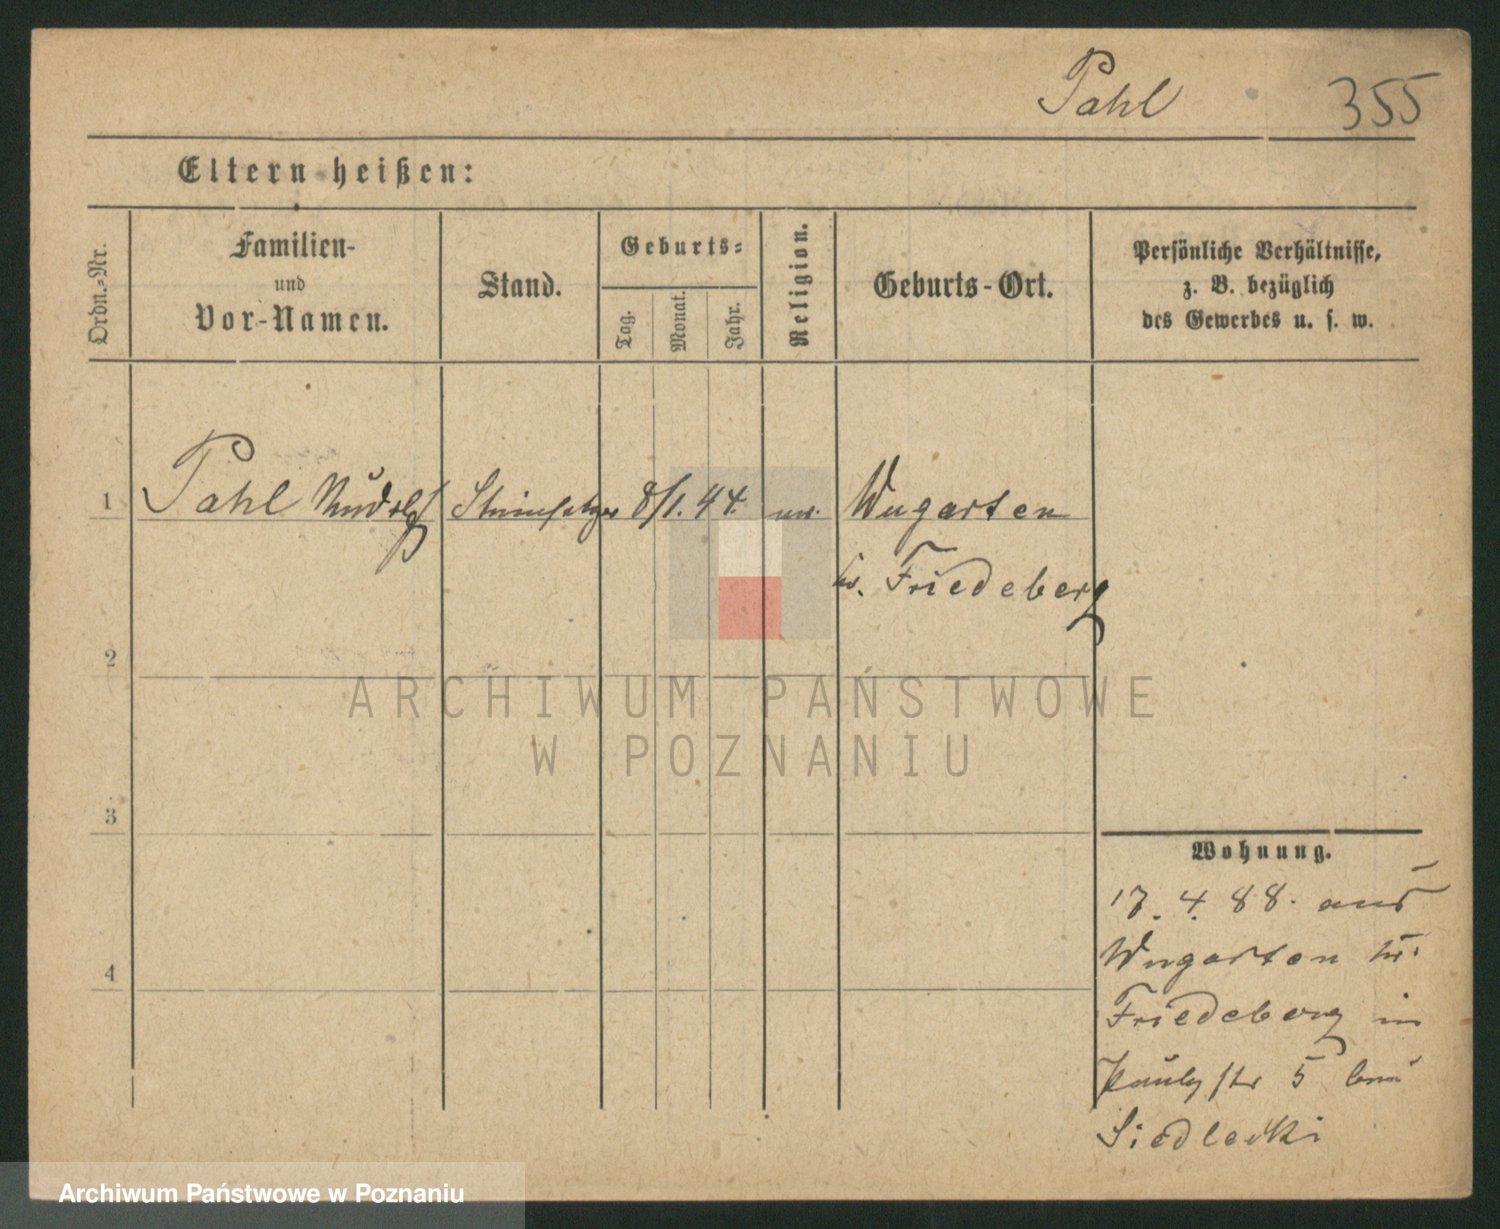 Pahl 355
Eltern heißen:
Ordn.-Nr.
Familien-
und
Vor-Namen.
Stand.
Geburts-
Tag.
Monat.
Jahr.
Religion.
Geburts-Ort.
Persönliche Verhältnisse,
z. B. bezüglich
des Gewerbes u. s. w.
1
Pahl Rudolf Steinsetzer 8/1. 44. ev. Wugarten
kr. Friedeberg
2
3
4
Wohnung.
17. 4. 88. aus
Wugarten kr.
Friedeberg in
str 5 bei
Siedlecki
ARCHIWUM PAŃSTWOWE
W POZNANIU
Archiwum Państwowe w Poznaniu